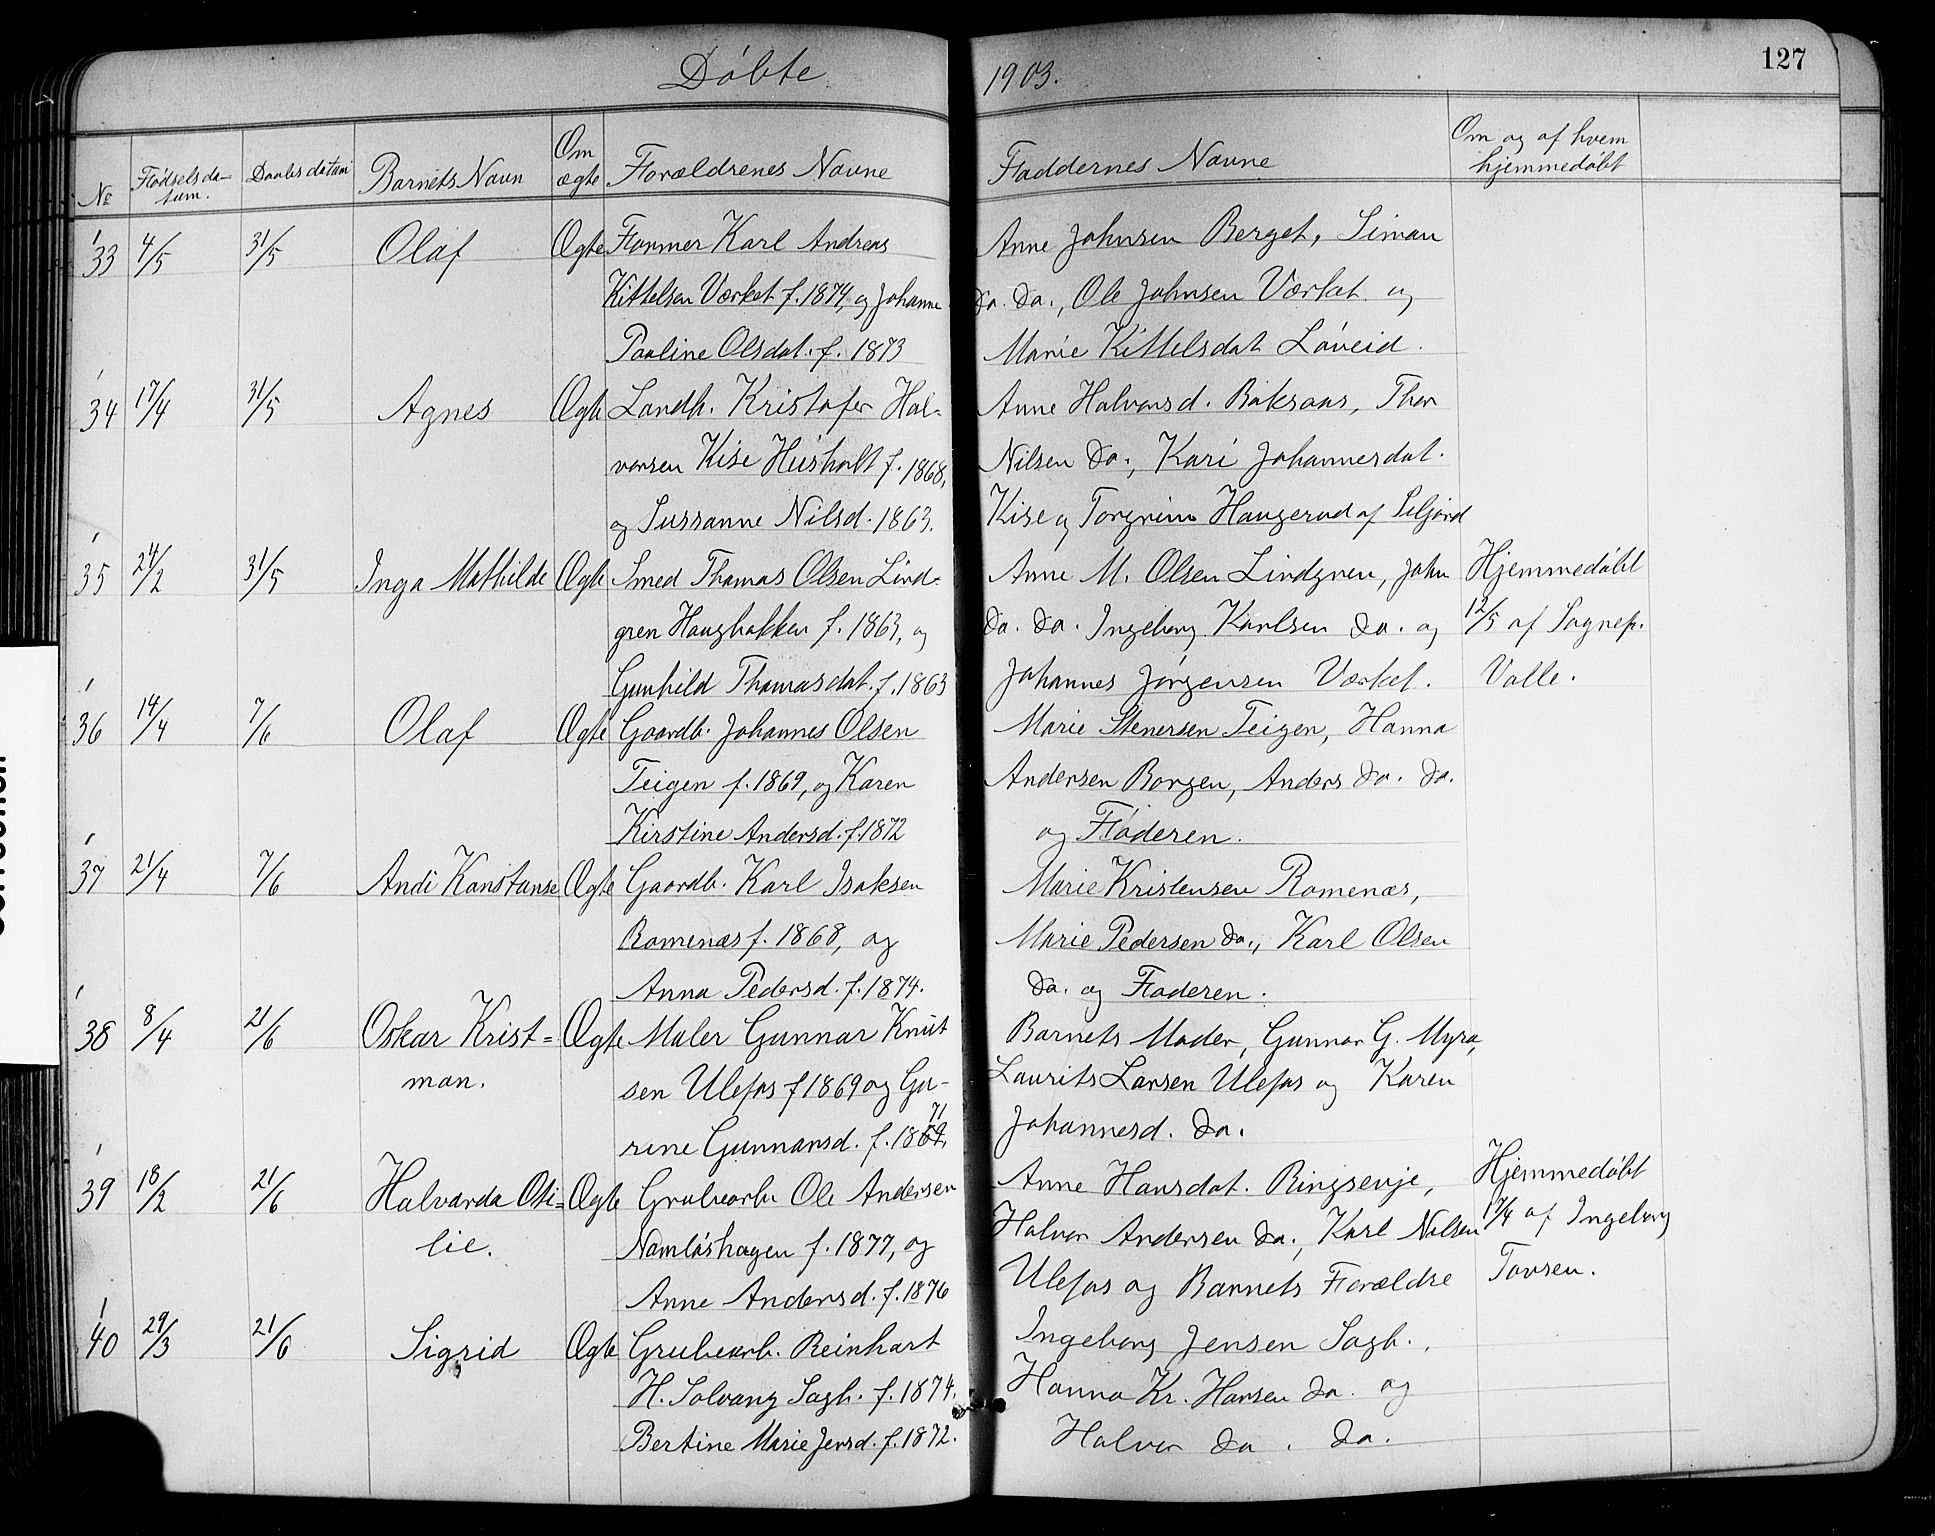 Döbte 1903. 127
№ Födselsdatum. Daabsdatum Barnets Navn Om ægte Forældrenes Navne Faddernes Navne Om og af hvem hjemmedöbt
33 4/5 31/5 Olaf Ægte Former Karl Andreas
Kittelsen Værket f. 1874, og Johanne
Pauline Olsdat. f. 1873
Anne Johnsen Berget, Simon
do. do., Ole Johnsen Værket og
Marie Kittelsdat Löveid.
34 17/4 31/5 Agnes Ægte Landh. Kristofer Hal-
vorsen Kise Husholt f. 1868,
og Sussanne Nilsd. 1863.
Anne Halvorsd. Baksaas, Thor
Nilsen do., Kari Johannesdat.
Kise og Torgrim Haugerud af Seljord
35 24/2 31/5 Inga Mathilde Ægte Smed Thomas Olsen Lind-
gren Haugbakken f. 1863, og
Gunhild Thomasdat. f. 1863
Anne M. Olsen Lindgren, John
do. do. Ingeborg Karlsen do. og
Johannes Jørgensen Værket.
Hjemmedöbt
12/5 af Sognep.
Valle.
36 14/4 7/6 Olaf Ægte Gaardb. Johannes Olsen
Teigen f. 1869, og Karen
Kirstine Andersd. f. 1872
Marie Stenersen Teigen, Hanna
Andersen Borgen, Anders do. do.
og Faderen.
37 21/4 7/6 Andi Konstanse Ægte Gaardb. Karl Isaksen
Romenæs f. 1868, og
Anna Pedersd. f. 1874.
Marie Kristensen Romenæs,
Marie Pedersen do., Karl Olsen
do. og Faderen.
38 8/4 21/6 Oskar Krist=
man. Ægte Maler Gunnar Knut
sen Ulefos f 1869 og Gu-
rine Gunnarsd. f. 1869. 71
Barnets Moder, Gunnar G. Myra,
Laurits Larsen Ulefos og Karen
Johannesd. do.
39 18/2 21/6 Halvarda Oti=
lie. Ægte Grubearb. Ole Andersen
Namløshagen f. 1877, og
Anne Andersd. f. 1876
Anne Hansdat. Ringsevje,
Halvor Andersen do., Karl Nilsen
Ulefos og Barnets Forældre
Hjemmedöbt
17/4 af Ingeborg
Tovsen.
40 29/3 21/6 Sigrid Ægte Grubearb. Reinhart
H. Solvang Sagb. f. 1874.
Bertine Marie Jensd. f. 1872.
Ingeborg Jensen Sagb.,
Hanna Kr. Hansen do. og
Halvor do. do.